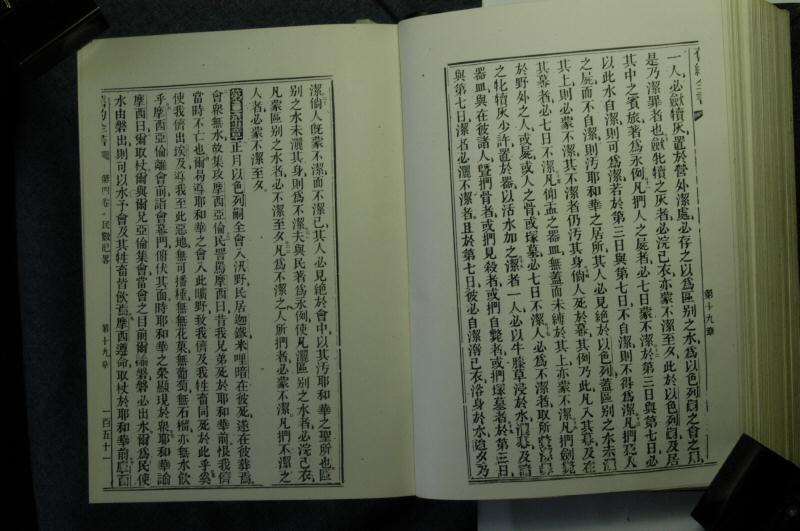 舊約全書
第十九章
一人必斂牝犢灰置於營外潔處必存之以為區別之水為以色列嗣之會之用
是乃潔罪者也斂牝犢之灰者必浣己衣亦蒙不潔至夕此於以色列嗣及居
其中之賓旅著為永例凡捫人之屍者必七日蒙不潔於第三日與第七日必
以此水自潔則可為潔若於第三日與第七日不自潔則不得為潔凡捫死人
之屍而不自潔則污耶和華之居所其人必見絕於以色列蓋區別之水未灑
其上則必蒙不潔其不潔者仍污其身倘人死於幕其例乃此凡入其幕及在
其幕者必七日不潔凡仰盂之器皿無蓋而未縛於其上亦蒙不潔凡捫劍斃
於野外之人或屍或人之骨或塚墓必七日不潔人必為不潔者取所焚
之牝犢灰少許置於器以活水加之潔者一人必以牛膝草浸於水灑幕及諸
器皿與在彼諸人暨捫骨者或捫見殺者或捫自斃者或捫塚墓者於第三日
與第七日潔者必灑不潔者且於第七日彼必自潔澣己衣洛身於水迨夕乃
潔倘人既蒙不潔而不潔己其人必見絕於會中以其污耶和華之聖所也區
別之水未灑其身則為不潔夫與民著為永例使凡灑區別之水者必浣己衣
凡蒙區別之水者必不潔至夕凡為不潔之人所捫者必蒙不潔凡捫不潔之
人者必蒙不潔至夕
第二十章正月以色列嗣全會入汛野民居迦鐵末哩暗在彼死遂在彼葬焉
會眾無水故集攻摩西亞倫民詈罵摩西曰昔我兄弟死於耶和華前恨我儕
當時不亡也爾曷導耶和華之會入此曠野致我儕及我牲畜同死於此乎奚
使我儕出埃及導我至此惡地無可播種無無花菓無葡萄無石榴亦無水飲
乎摩西亞倫離會前詣會幕門俯伏其面時耶和華之榮顯現於眾耶和華諭
摩西曰爾取杖爾與爾兄亞倫集會當會之目前爾諭磐磐必出水爾為民使
水由磐出則可以水予會及其牲畜飲焉摩西遵命取杖於耶和華前
舊約全書
第四卷
民數紀畧
第十九章
一百五十一